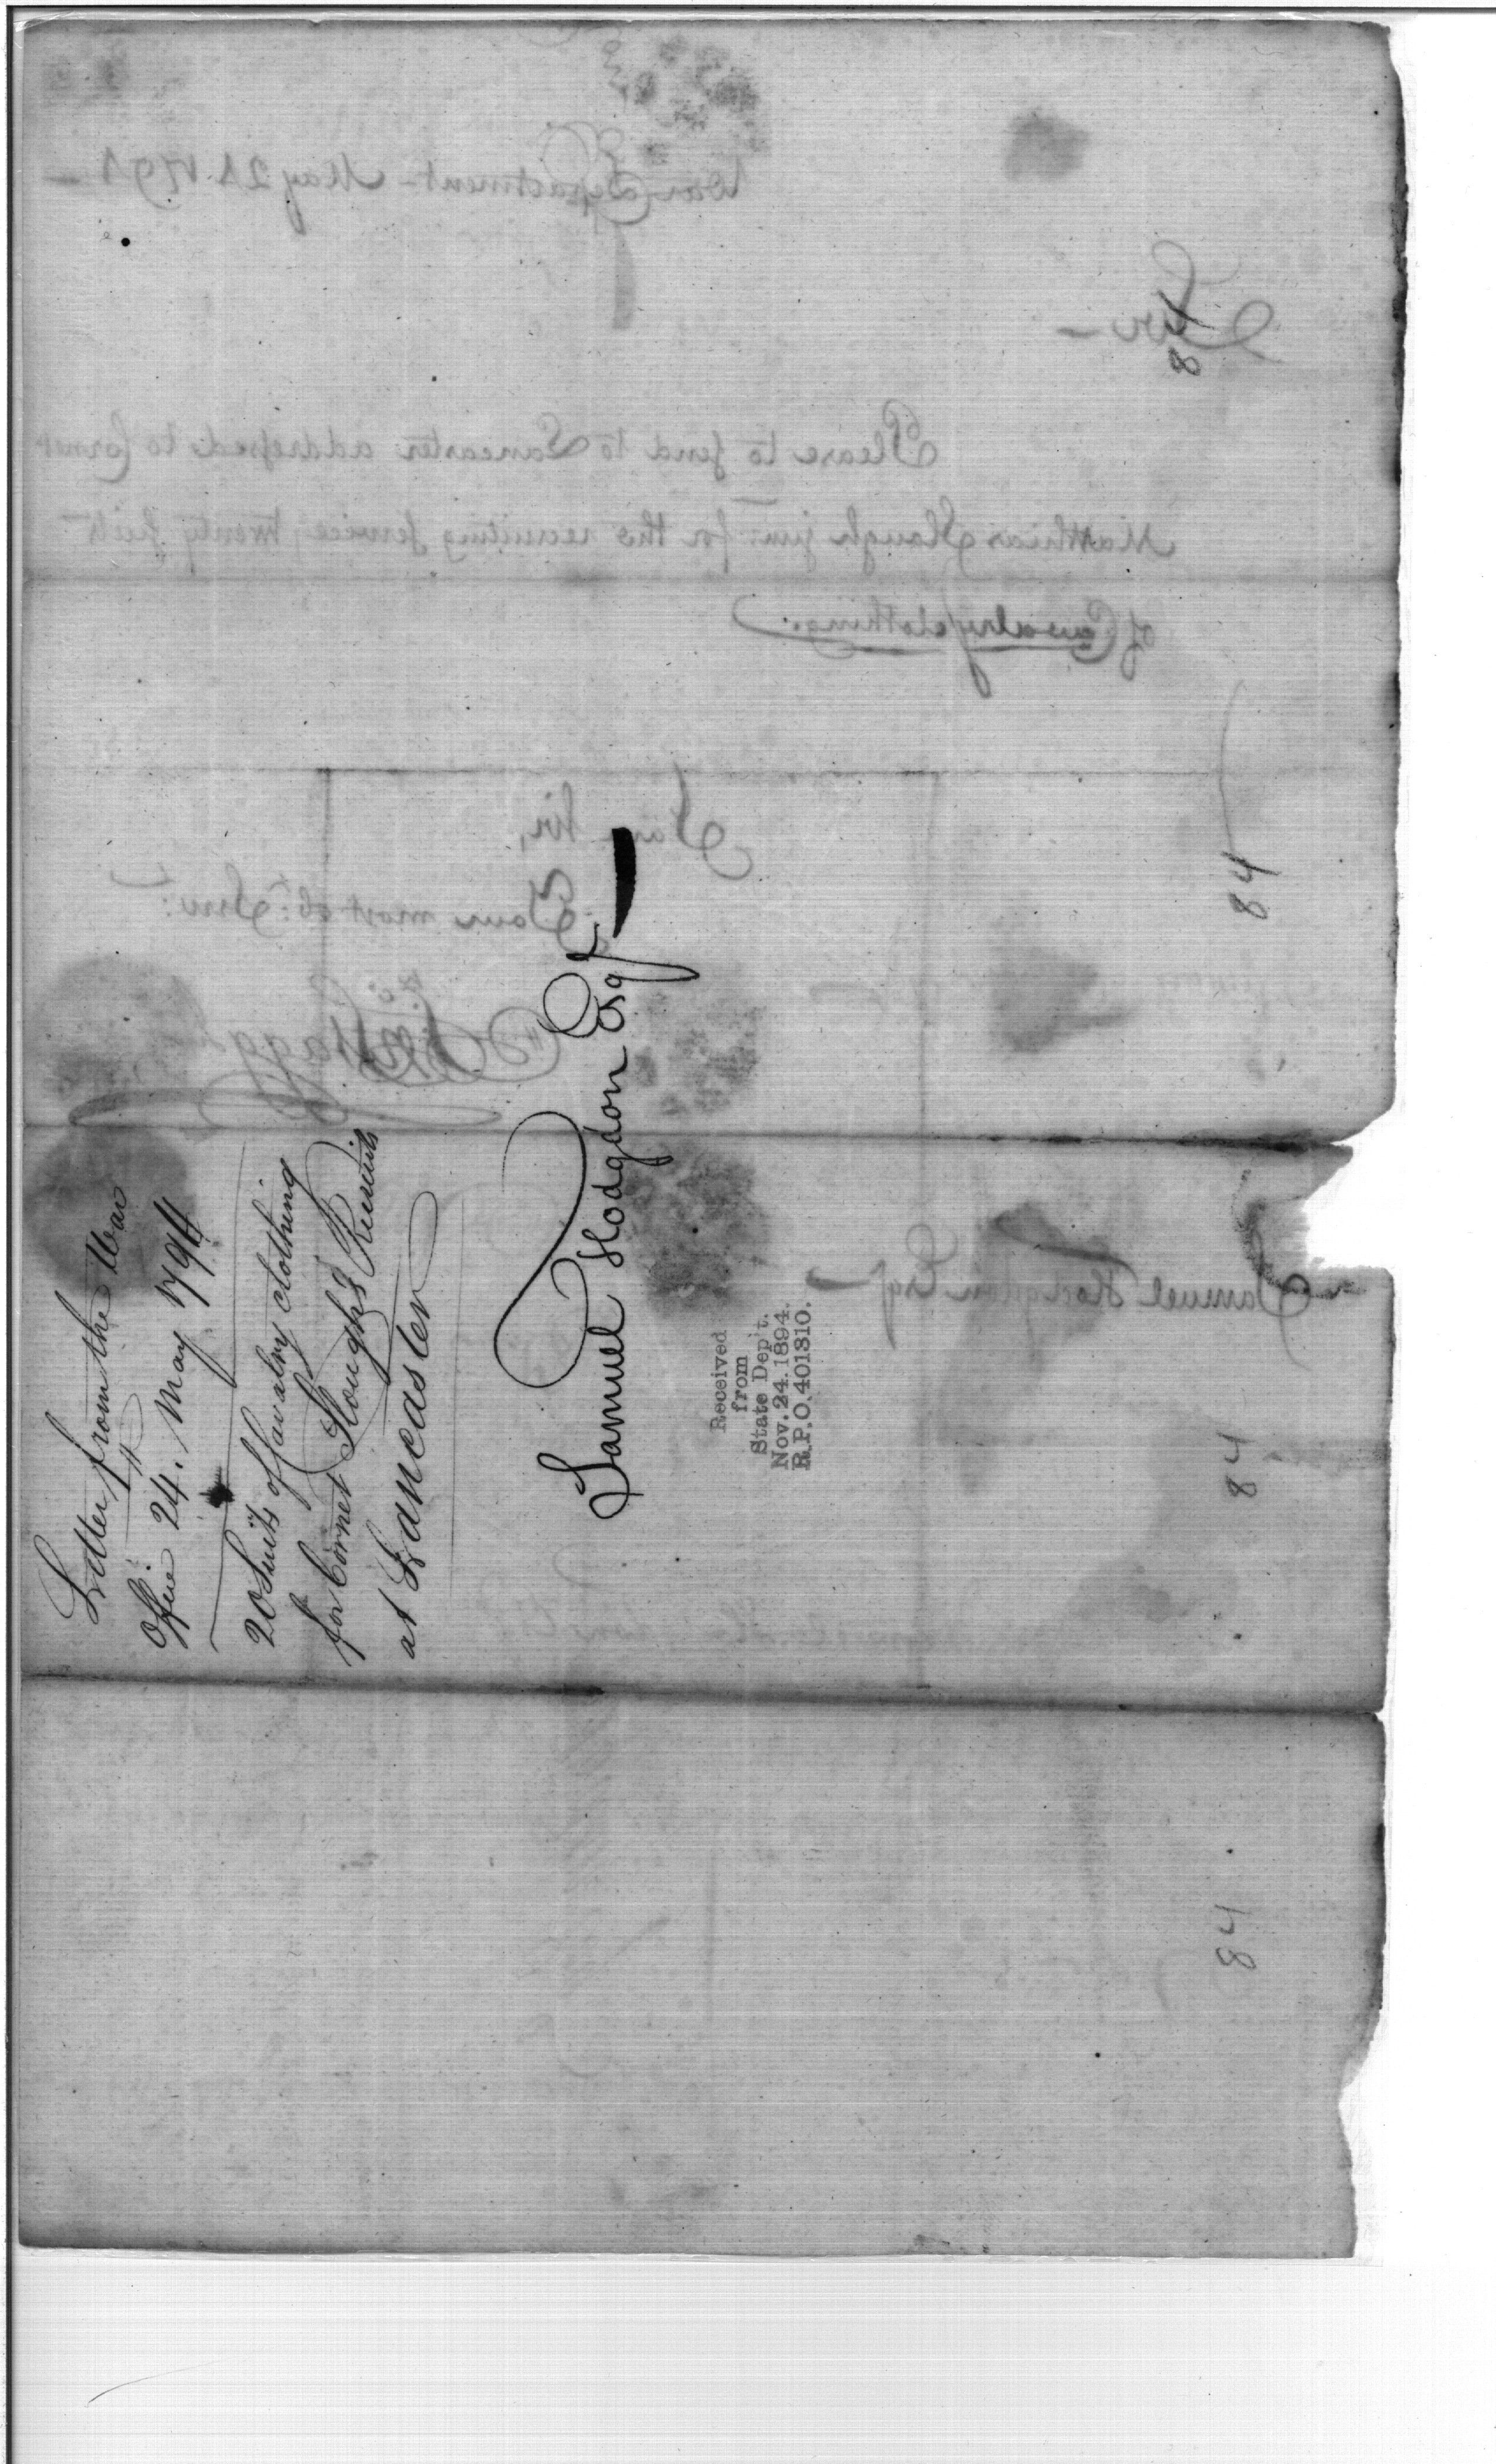 Letter from the War
Office 24. May 1794
20 Suits of Cavalry Clothing
for Cornet Sloughs Recruits
at Lancaster
Samuel Hodgdon Esqr
Received
from
State Dep't.
Nov. 24. 1894.
R.P.O. 401310.
84
84
84
84
War Department - May 24 1794 -
Sir -
Please to send to Lancaster addressed to Cornet
Matthias Slough junr for the recruiting service twenty suits
of Cavalry clothing.
I am Sir,
Your most obt. Serv:
Samuel Hodgdon Esqr